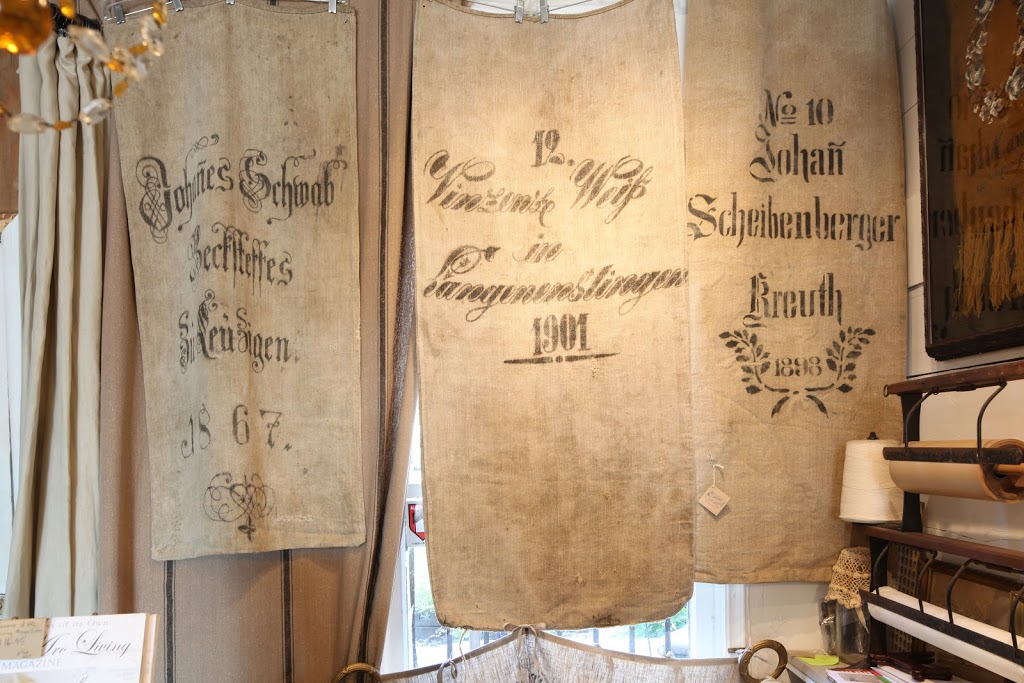 Johañes Schwab
Becksteffes
in Leüzigen.
1867.
12.
Vinzenz Weiß
in
Langenenslingen
1901
No 10
Johañ
Scheibenberger
Kreuth
1898
Living
MAGAZINE